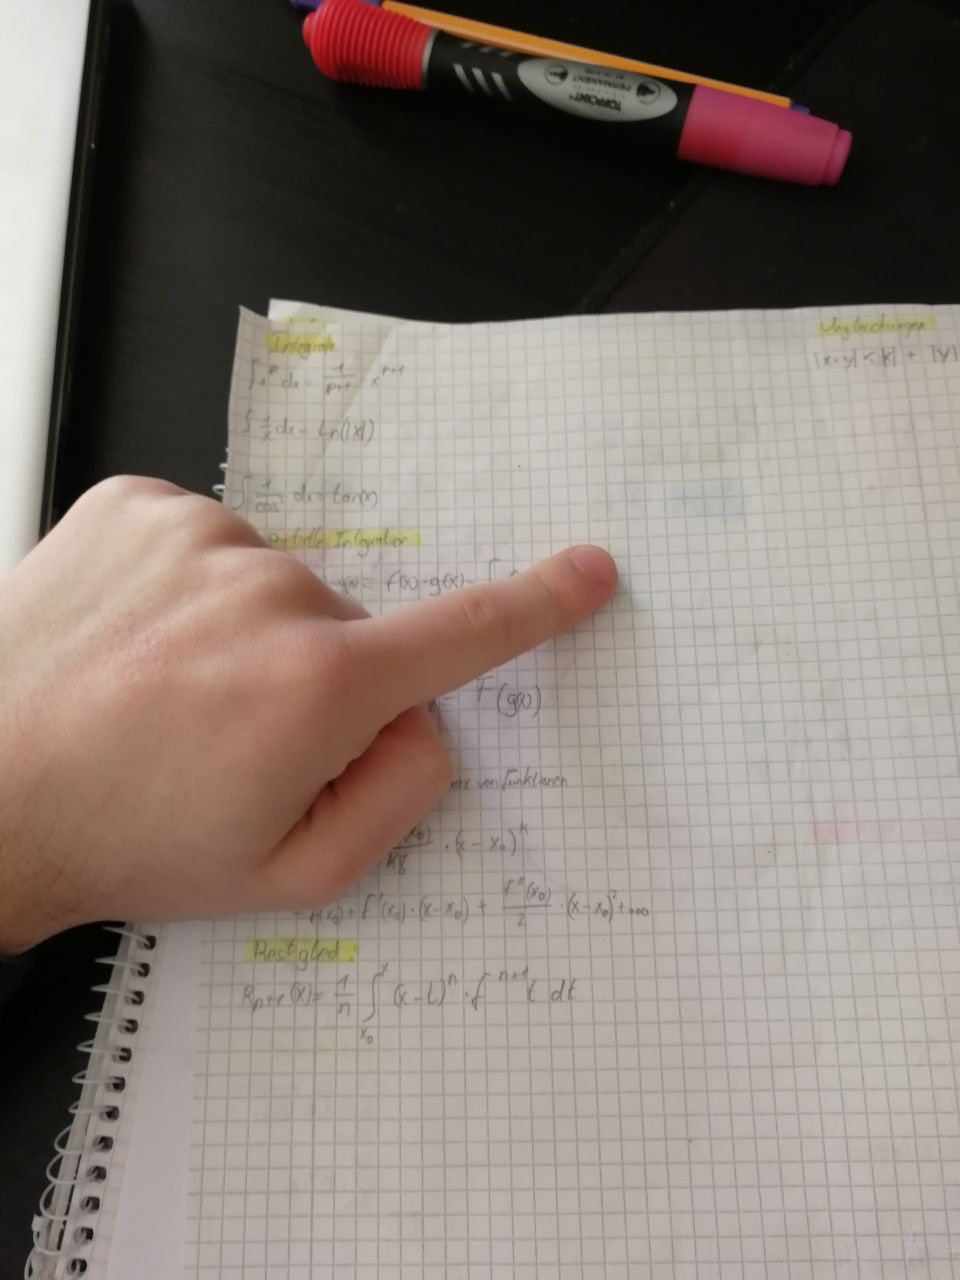 TOPPOINT
PERMANENT
Integrale
∫ x^p dx = 1/(p+1) x^(p+1)
∫ 1/x dx = ln(|x|)
∫ 1/cos² dx = tan(x)
Partielle Integration
g(x) = f(x)·g(x) - ∫
= F(g(x))
von Funktionen
(x₀)/k! · (x - x₀)^k
f(x₀) + f'(x₀)·(x-x₀) + f''(x₀)/2 · (x-x₀)² + ...
Restglied
R_(n+1)(x) = 1/n ∫_(x₀)^x (x-t)^n · f^(n+1) t dt
Ungleichungen
|x+y| < |x| + |y|